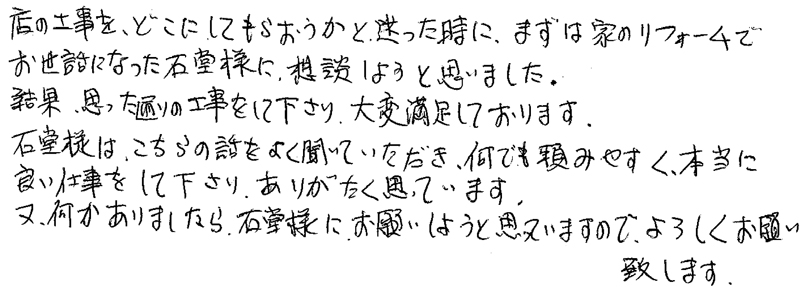 店の工事を、どこにしてもらおうかと、迷った時に、まずは家のリフォームで
お世話になった石堂様に、想談しようと思いました。
結果、思った通りの工事をして下さり、大変満足しております。
石堂様は、こちらの話をよく聞いていただき、何でも頼みやすく、本当に
良い仕事をして下さり、ありがたく思っています。
又、何かありましたら、石堂様に、お願いしようと思っていますので、よろしくお願い
致します。